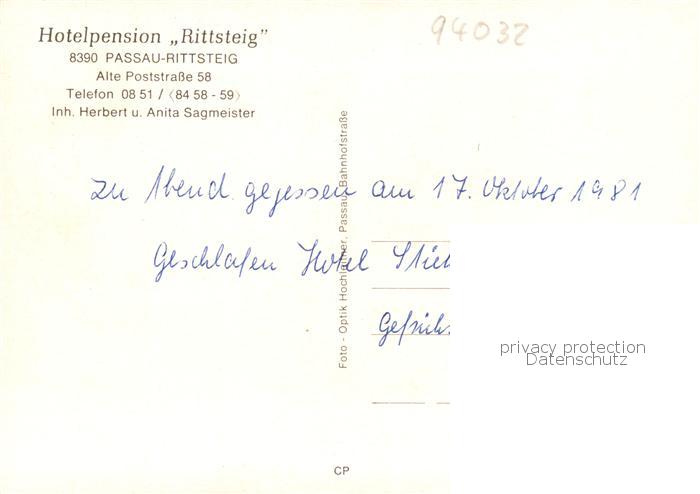 Hotelpension „Rittsteig”
8390 PASSAU-RITTSTEIG
Alte Poststraße 58
Telefon 08 51 / (84 58 - 59)
Inh. Herbert u. Anita Sagmeister
94032
zu Abend gegessen am 17. Oktober 1981
Geschlafen Hotel
Foto - Optik Passau, Bahnhofstraße
privacy protection
Datenschutz
CP